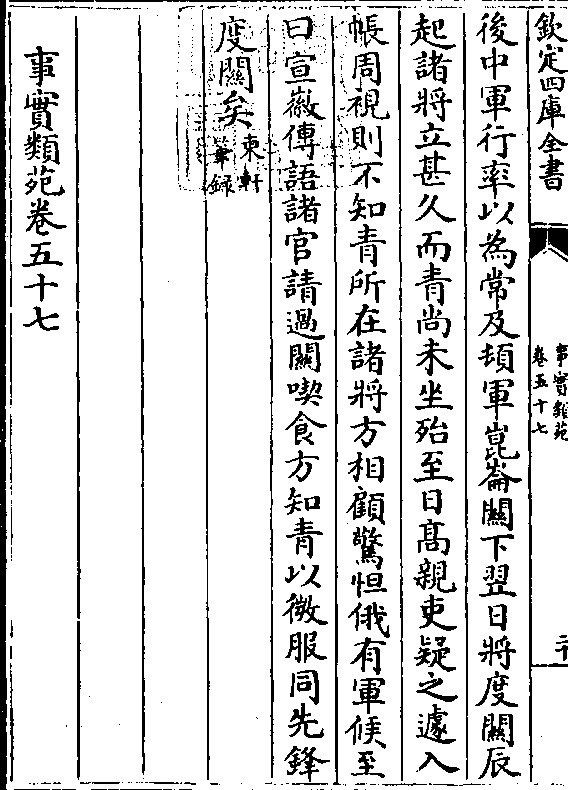 欽定四庫全書
事實類苑
卷五十七
二十
後中軍行率以為常及頓軍崑崙關下翌日將度關辰
起諸將立甚久而青尚未坐殆至日髙親吏疑之遽入
帳周視則不知青所在諸將方相顧驚怛俄有軍候至
曰宣徽傳語諸官請過關喫食方知青以微服同先鋒
度關矣
東軒
筆録
事實類苑卷五十七